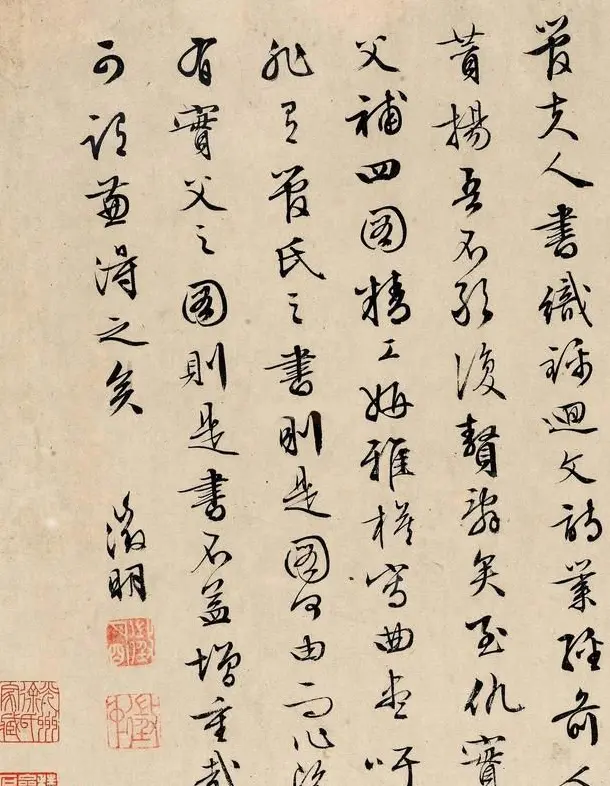 管夫人書織錦迴文詩業經前人
賛揚吾不能復贅辭矣至仇實
父補四圖精工妍雅模寫曲盡吁
非有管氏之書則是圖何由而作設
有實父之圖則是書不益增重哉
可謂兼得之矣
徵明